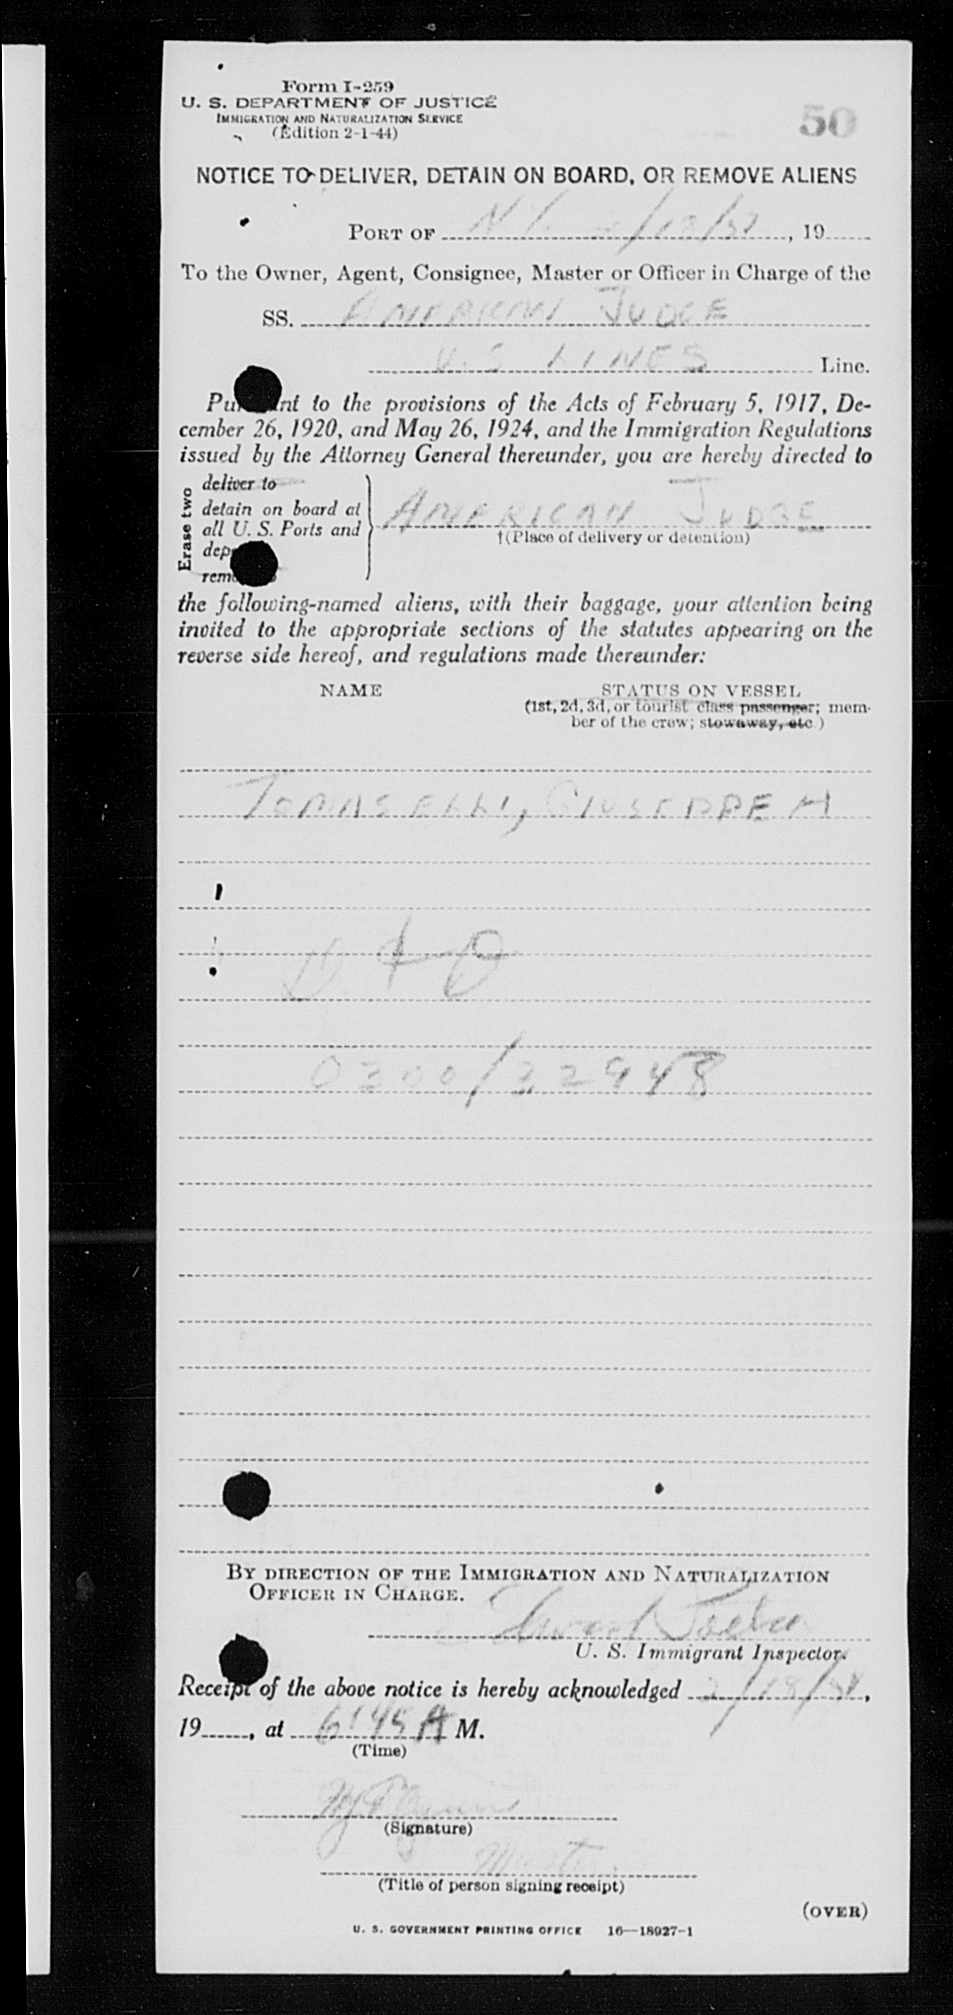 Form I-259
U. S. DEPARTMENT OF JUSTICE
IMMIGRATION AND NATURALIZATION SERVICE
(Edition 2-1-44)
50
NOTICE TO DELIVER, DETAIN ON BOARD, OR REMOVE ALIENS
PORT OF N Y. , 19
To the Owner, Agent, Consignee, Master or Officer in Charge of the
SS. AMERICAN JUDGE
U.S LINES Line.
Pursuant to the provisions of the Acts of February 5, 1917, De-
cember 26, 1920, and May 26, 1924, and the Immigration Regulations
issued by the Attorney General thereunder, you are hereby directed to
Erase two
deliver to
detain on board at
all U. S. Ports and
AMERICAN JUDGE
†(Place of delivery or detention)
the following-named aliens, with their baggage, your attention being
invited to the appropriate sections of the statutes appearing on the
reverse side hereof, and regulations made thereunder:
NAME STATUS ON VESSEL
(1st, 2d, 3d, or tourist class passenger; mem-
ber of the crew; stowaway, etc.)
TOMASELLI, GIUSEPPE A
D & O
0300/32948
BY DIRECTION OF THE IMMIGRATION AND NATURALIZATION
OFFICER IN CHARGE.
U. S. Immigrant Inspector.
Receipt of the above notice is hereby acknowledged ,
19 , at 6:45 A M.
(Time)
(Signature)
Master
(Title of person signing receipt)
(OVER)
U. S. GOVERNMENT PRINTING OFFICE 16—18927-1